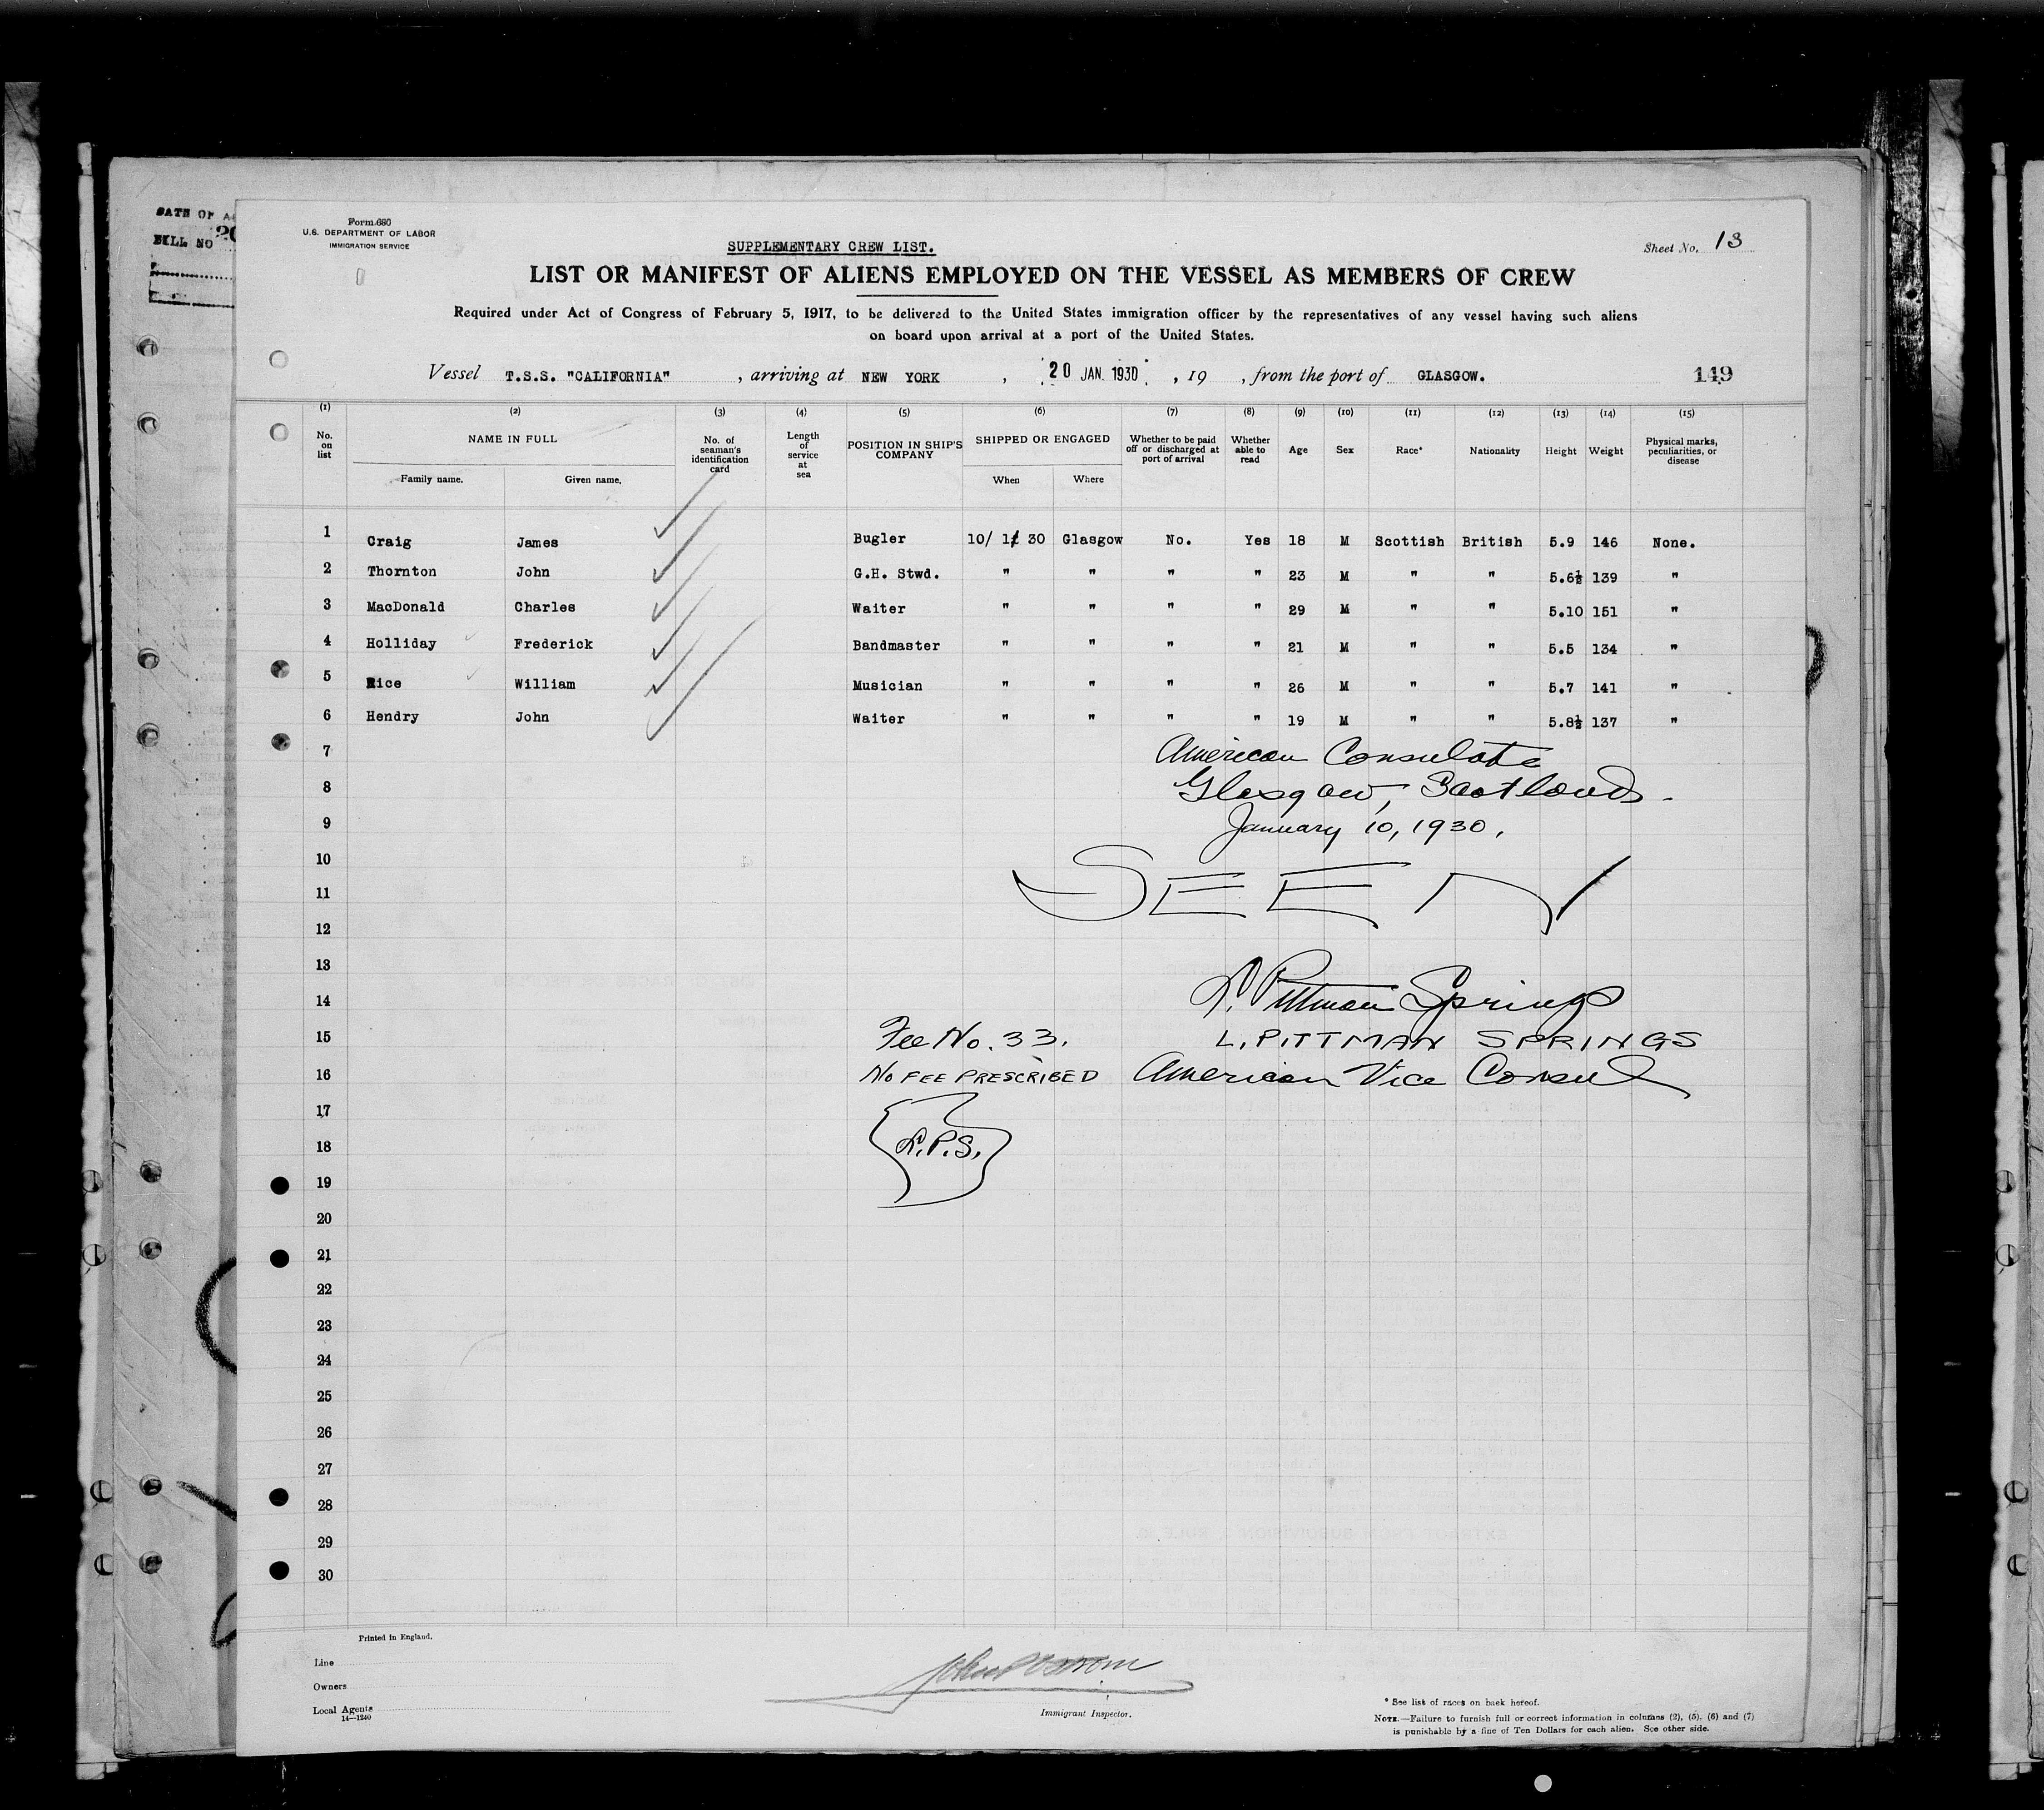 BILL NO 20
Form 680
U.S. DEPARTMENT OF LABOR
IMMIGRATION SERVICE
SUPPLEMENTARY CREW LIST.
Sheet No. 13
LIST OR MANIFEST OF ALIENS EMPLOYED ON THE VESSEL AS MEMBERS OF CREW
Required under Act of Congress of February 5, 1917, to be delivered to the United States immigration officer by the representatives of any vessel having such aliens
on board upon arrival at a port of the United States.
Vessel T.S.S. "CALIFORNIA", arriving at NEW YORK, 20 JAN. 1930, 19 , from the port of GLASGOW. 149
(1) (2) (3) (4) (5) (6) (7) (8) (9) (10) (11) (12) (13) (14) (15)
No. on list NAME IN FULL Family name. Given name. No. of seaman's identification card Length of service at sea POSITION IN SHIP'S COMPANY SHIPPED OR ENGAGED When Where Whether to be paid off or discharged at port of arrival Whether able to read Age Sex Race* Nationality Height Weight Physical marks, peculiarities, or disease
1 Craig James Bugler 10/ 1/ 30 Glasgow No. Yes 18 M Scottish British 5.9 146 None.
2 Thornton John G.H. Stwd. " " " " 23 M " " 5.6½ 139 "
3 MacDonald Charles Waiter " " " " 29 M " " 5.10 151 "
4 Holliday Frederick Bandmaster " " " " 21 M " " 5.5 134 "
5 Rice William Musician " " " " 26 M " " 5.7 141 "
6 Hendry John Waiter " " " " 19 M " " 5.8½ 137 "
7 American Consulate
8 Glasgow, Scotland.
9 January 10, 1930.
10
11 SEEN
12
13
14 L. Pittman Springs
15 Fee No. 33. L. PITTMAN SPRINGS
16 NO FEE PRESCRIBED American Vice Consul
17
18 L.P.S.
19
20
21
22
23
24
25
26
27
28
29
30
Printed in England.
Line
Owners
Local Agents
14—1240
Immigrant Inspector.
* See list of races on back hereof.
NOTE.—Failure to furnish full or correct information in columns (2), (5), (6) and (7)
is punishable by a fine of Ten Dollars for each alien. See other side.